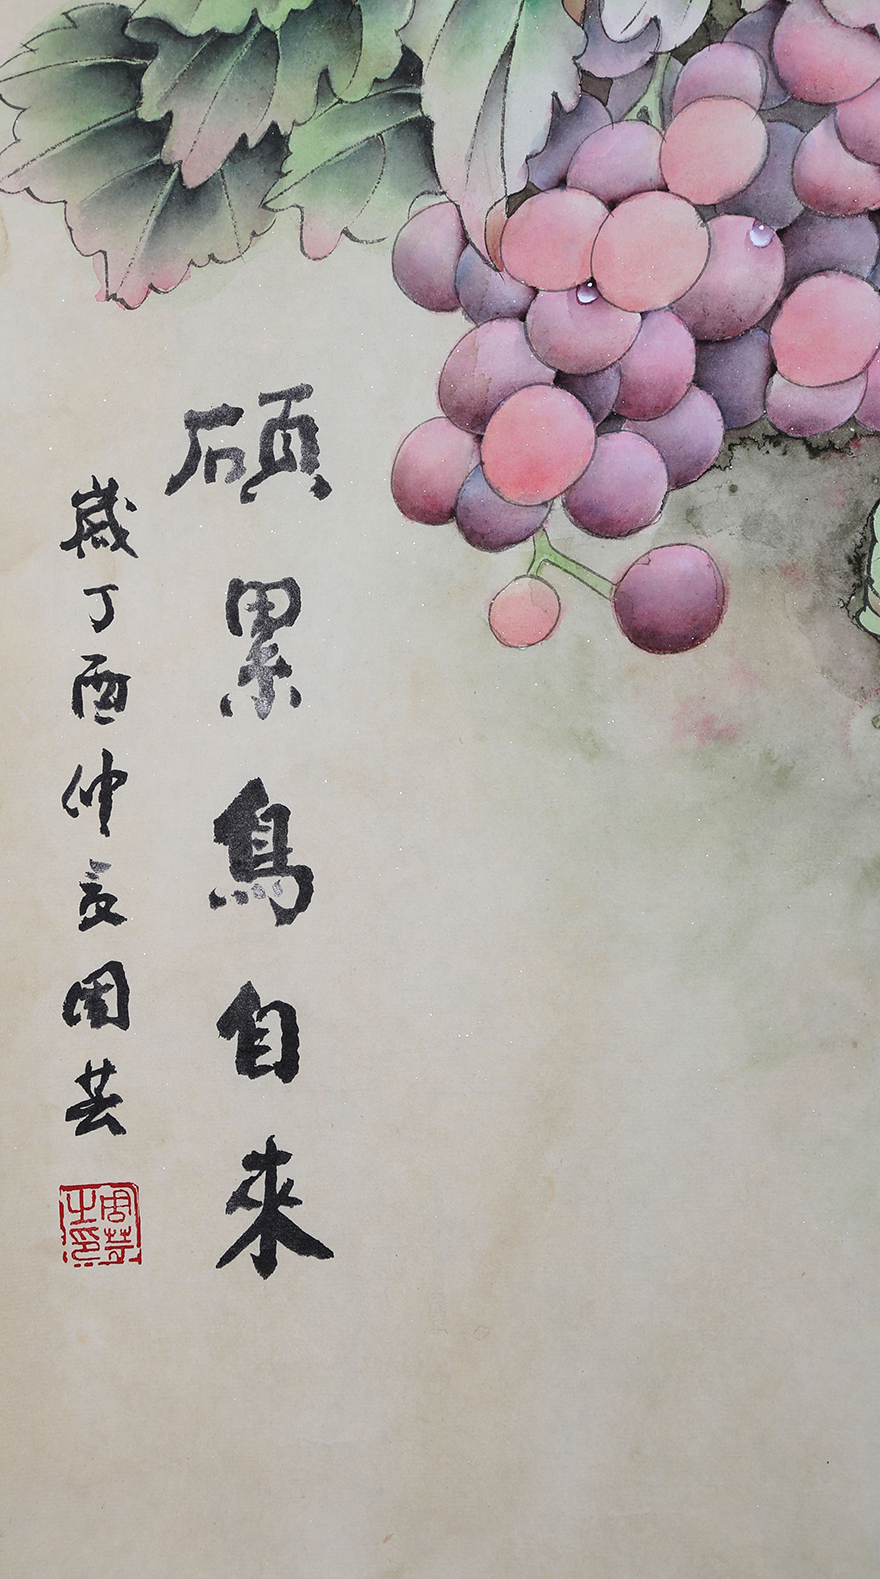 碩累鳥自來
歲丁酉仲夏周芸
周芸之印